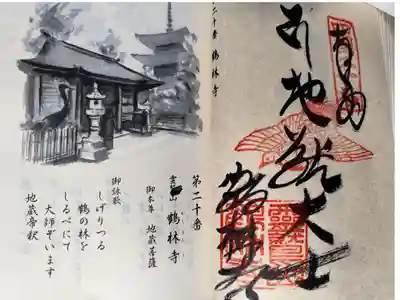 第二十番
霊鷲山 鶴林寺
御本尊 地蔵菩薩
御詠歌
しげりつる
鶴の林を
しるべにて
大師ぞいます
地蔵帝釈
二十番 鶴林寺
奉納
地蔵大士
鶴林寺